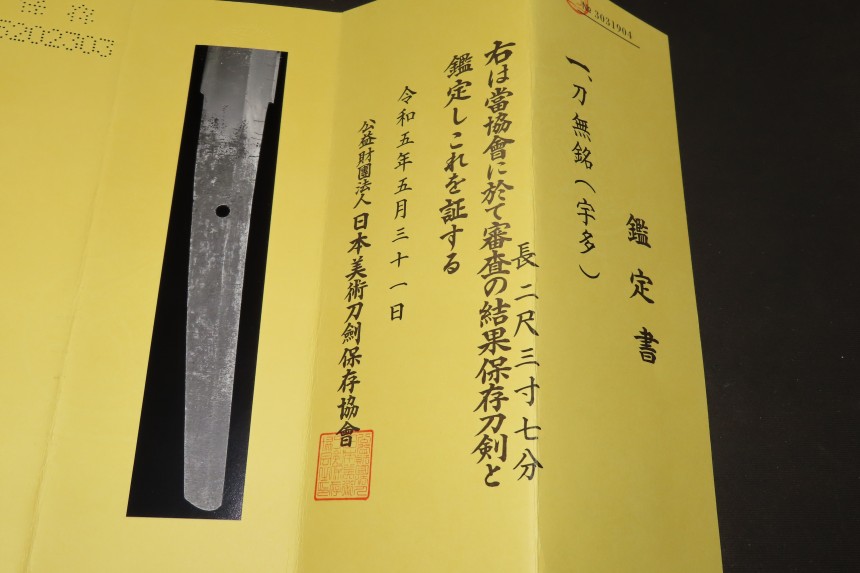 № 3031904
鑑定書
一、刀無銘（宇多）
長二尺三寸七分
右は當協會に於て審査の結果保存刀剣と
鑑定しこれを証する
令和五年五月三十一日
公益財團法人日本美術刀劍保存協會
5202303